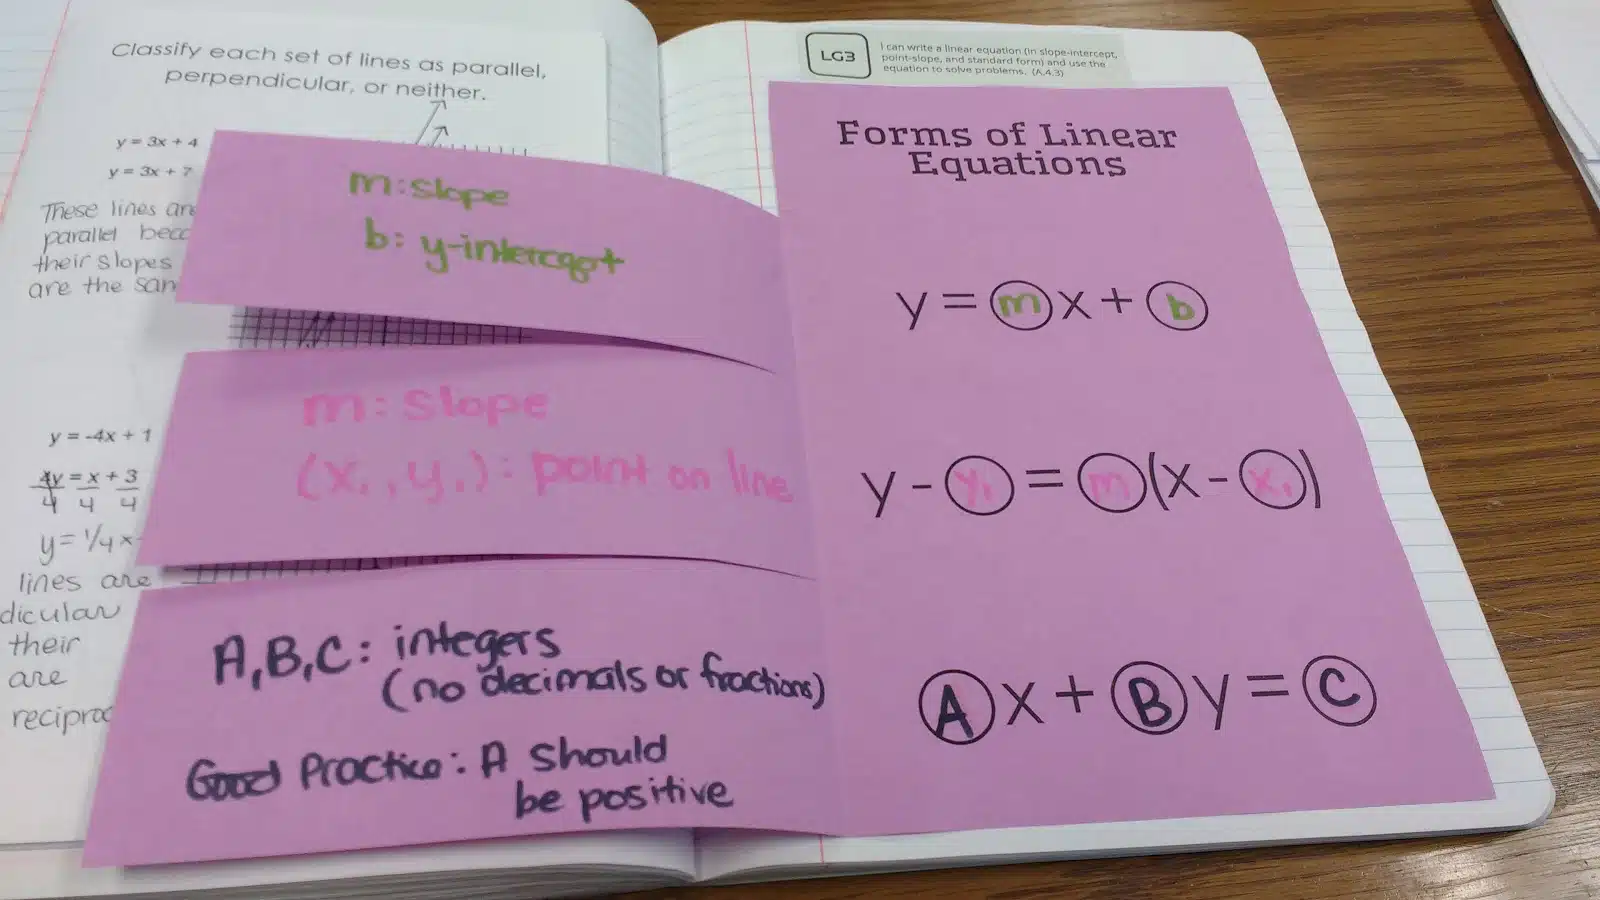 Classify each set of lines as parallel,
perpendicular, or neither.
y = 3x + 4
y = 3x + 7
These lines are
parallel
their slopes
are the
y = -4x + 1
4y = x + 3
4 4 4
y = 1/4 x
lines are
their
are
m: slope
b: y-intercept
m: slope
(x₁, y₁): point on line
A, B, C: integers
(no decimals or fractions)
Good Practice: A should
be positive
LG3
I can write a linear equation (in slope-intercept,
point-slope, and standard form) and use the
equation to solve problems. (A.4.3)
Forms of Linear
Equations
y = m x + b
y - y₁ = m (x - x₁)
A x + B y = C